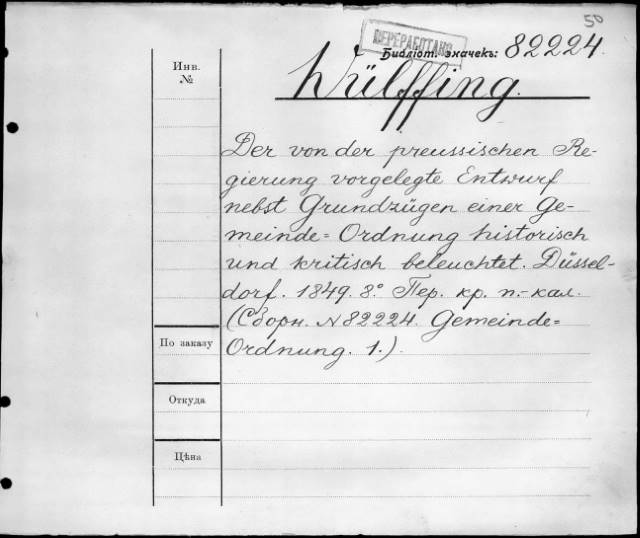 50
ПЕРЕРАБОТАНО
Библіот. значекъ: 82224.
Инв.
№
Wülffing.
Der von der preussischen Re-
gierung vorgelegte Entwurf
nebst Grundzügen einer Ge-
meinde=Ordnung historisch
und kritisch beleuchtet. Düssel-
dorf. 1849. 8.° Пер. кр. п.-кал.
(Сборн. №82224. Gemeinde=
Ordnung. 1.).
По заказу
Откуда
Цѣна